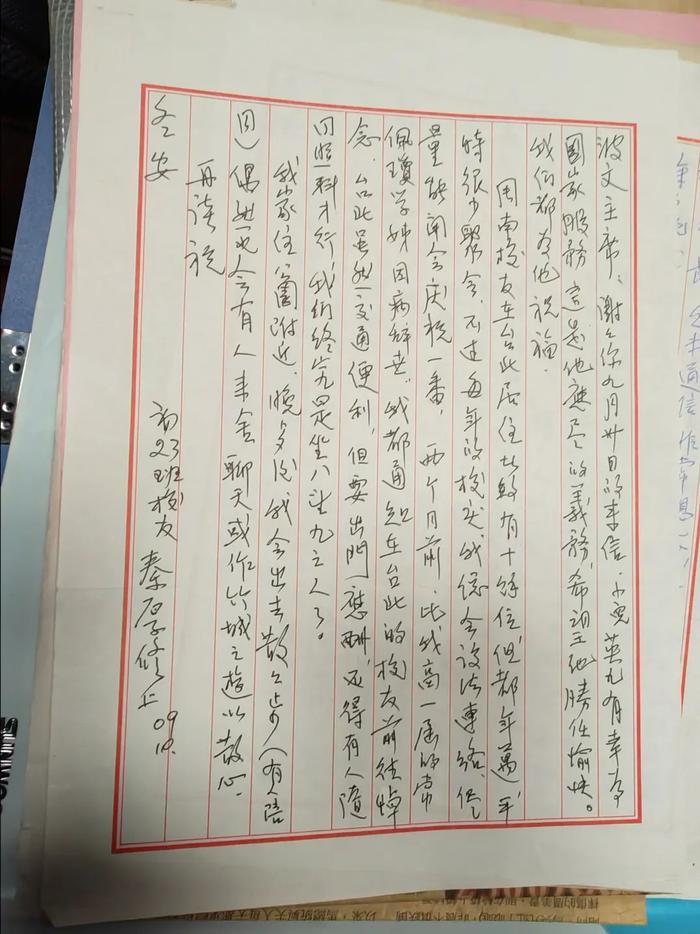 波文主席：谢谢你九月卅日的来信。小儿英九有幸为
国家服务，这是他应尽的義務，希望他勝任愉快。
我们都为他祝福。
周南校友在台北居住者約有十餘位，但都年萬，平
時很少聚会，不过每年的校庆，我总会设法連络，尽
量能闻会庆祝一番，两个月前，比我高一届的常
佩瓊学姊因病辞世，我都通知在台北的校友前往悼
念。台北虽然交通便利，但要出門應酬，还得有人随
同照料才行，我们终究是坐八望九之人了。
我家住公園附近，晚身后我会出去散散步（有人陪
同）偶然也会有人来舍聊天或作竹城之遊以散心。
再谈祝
冬安
初23班校友 秦厚修上 09
10.